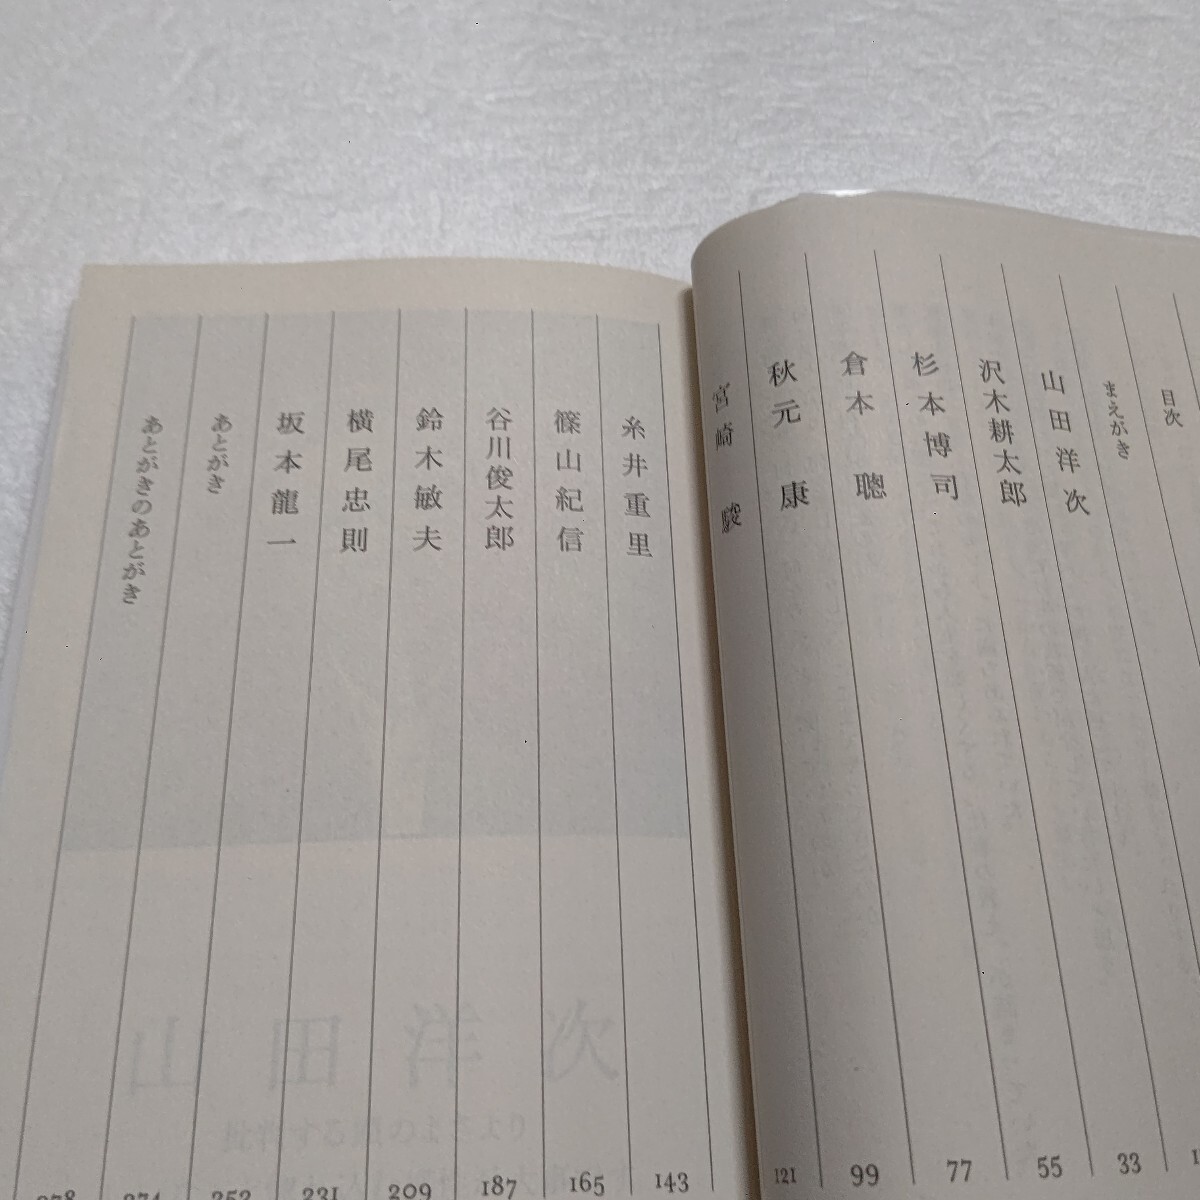 目次
まえがき
山田洋次
沢木耕太郎 33
杉本博司 55
倉本聰 77
秋元康 99
宮崎駿 121
糸井重里 143
篠山紀信 165
谷川俊太郎 187
鈴木敏夫 209
横尾忠則 231
坂本龍一 253
あとがき 274
あとがきのあとがき 278
山田洋次
批評する頭のよさより